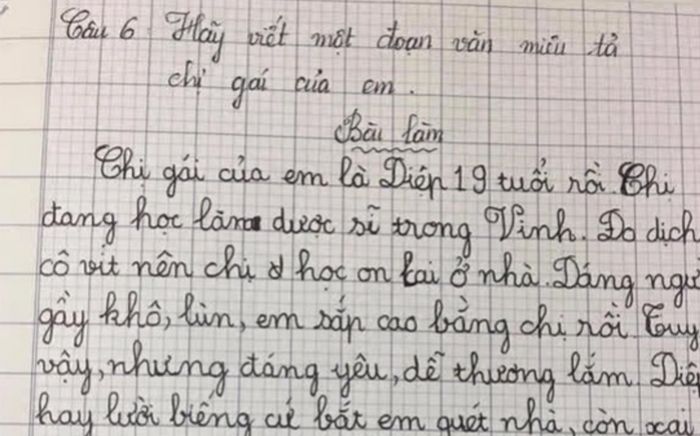 Câu 6 Hãy viết một đoạn văn miêu tả
chị gái của em.
Bài làm
Chị gái của em là Diệp 19 tuổi rồi. Chị
đang học làm dược sĩ trong Vinh. Do dịch
cô vit nên chị học on lai ở nhà. Dáng ngư
gầy khô, lùn, em sắp cao bằng chị rồi. Tuy
vậy, nhưng đáng yêu, dễ thương lắm. Diệp
hay lười biếng cứ bắt em quét nhà, còn sai